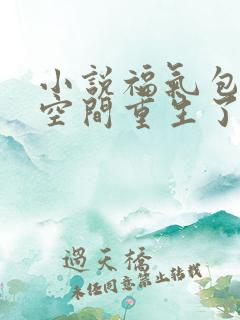 小說福氣包
空間重生了
過天橋
未經同意禁止轉載